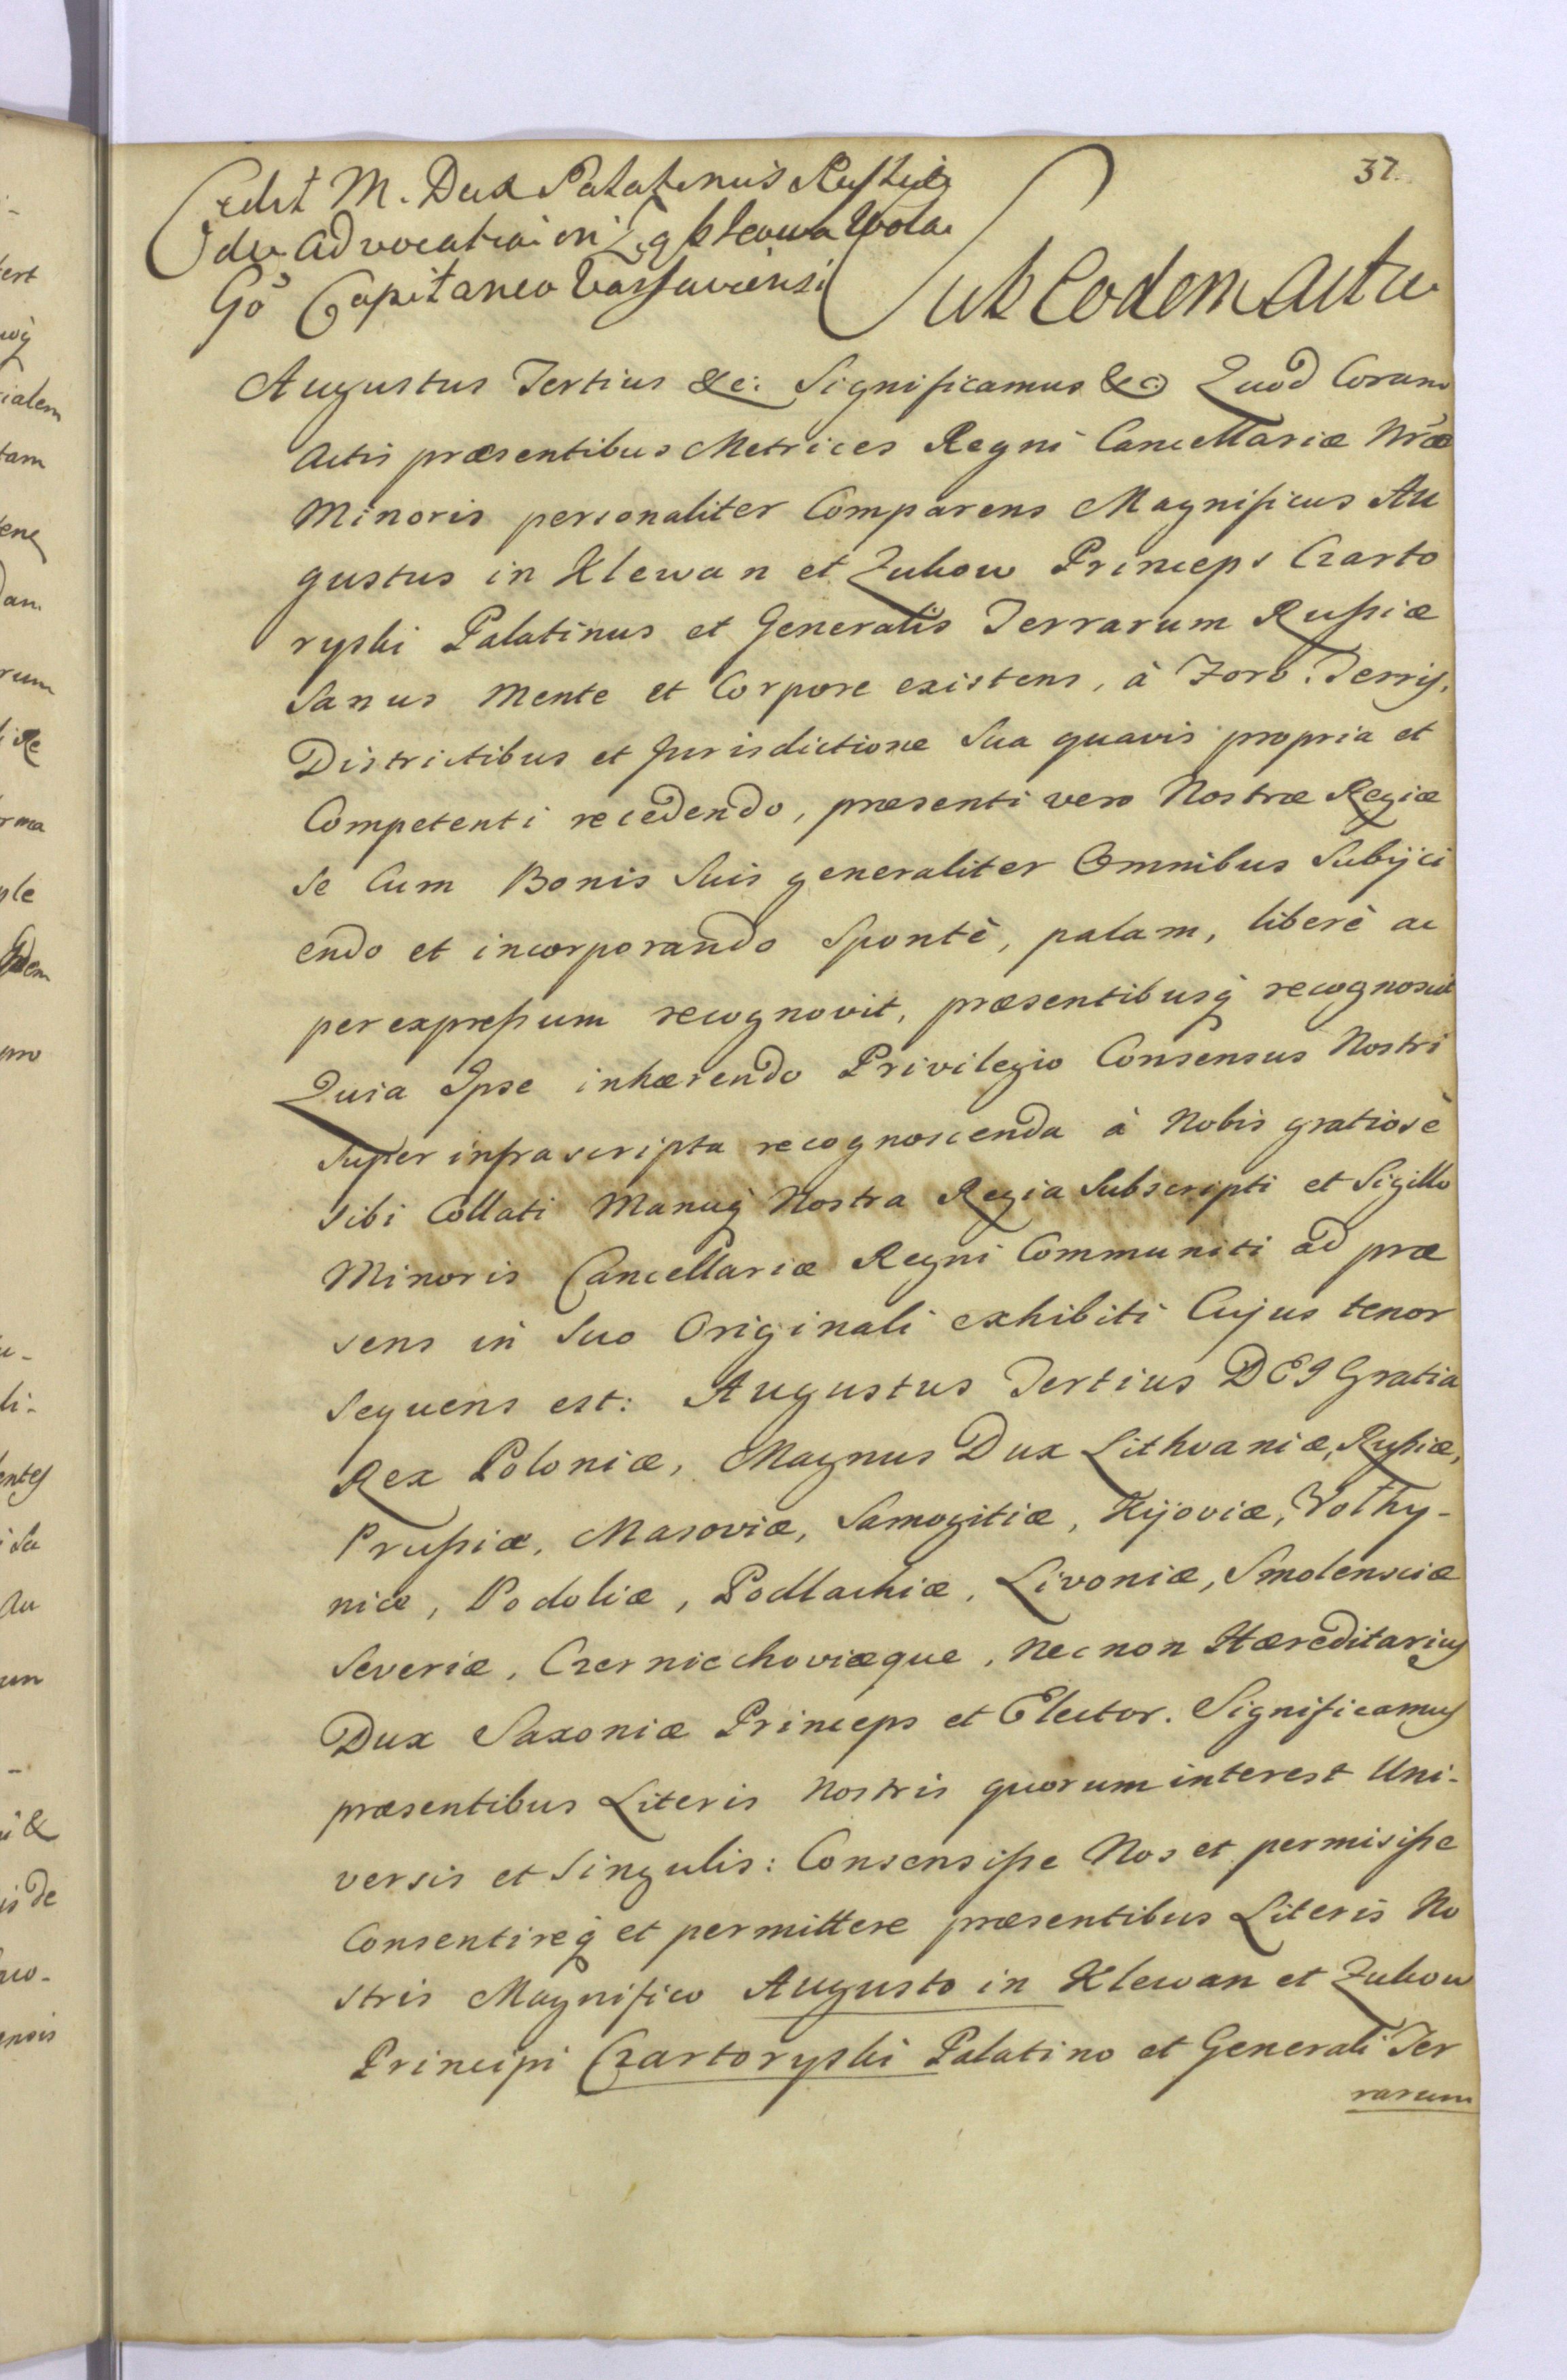 37.
Cedit M. Dux Palatinus Russiæ
de advocatia in Wola
Gö Capitaneo Varsaviensi
Sub Eodem actu
Augustus Tertius &c: Significamus &c Quod Coram
Actis præsentibus Metrices Regni Cancellariæ Nræ
Minoris personaliter Comparens Magnificus Au
gustus in Klewan et Zukow Princeps Czarto
ryski Palatinus et Generalis Terrarum Russiæ
Sanus Mente et Corpore existens, à Foro. Terris,
Districtibus et Jurisdictione Sua quavis propria et
Competenti recedendo, præsenti vero Nostræ Regiæ
se Cum Bonis Suis generaliter Omnibus Subijci
endo et incorporando Spontè, palam, liberè ac
per expressum recognovit, præsentibusq́ recognoscit
Quia Ipse inhærendo Privilegio Consensus Nostri
Super infrascripta recognoscenda à Nobis gratiosè
sibi Collati Manuq́ Nostra Regia Subscripti et Sigillo
Minoris Cancellariæ Regni Communiti ad præ
sens in Suo Originali exhibiti Cujus tenor
sequens est: Augustus Tertius DEI Gratia
Rex Poloniæ, Magnus Dux Lithvaniæ, Russiæ,
Prussiæ, Masoviæ, Samogitiæ, Kijoviæ, Volhy-
niæ, Podoliæ, Podlachiæ, Livoniæ, Smolensciæ
Severiæ, Czerniechoviæque, Nec non Hæreditarius
Dux Saxoniæ Princeps et Elector. Significamus
præsentibus Literis Nostris quorum interest Uni-
versis et Singulis: Consensisse Nos et permisisse
Consentireq́ et permittere præsentibus Literis No
stris Magnifico Augusto in Klewan et Zukow
Principi Czartoryski Palatino et Generali Ter
rarum